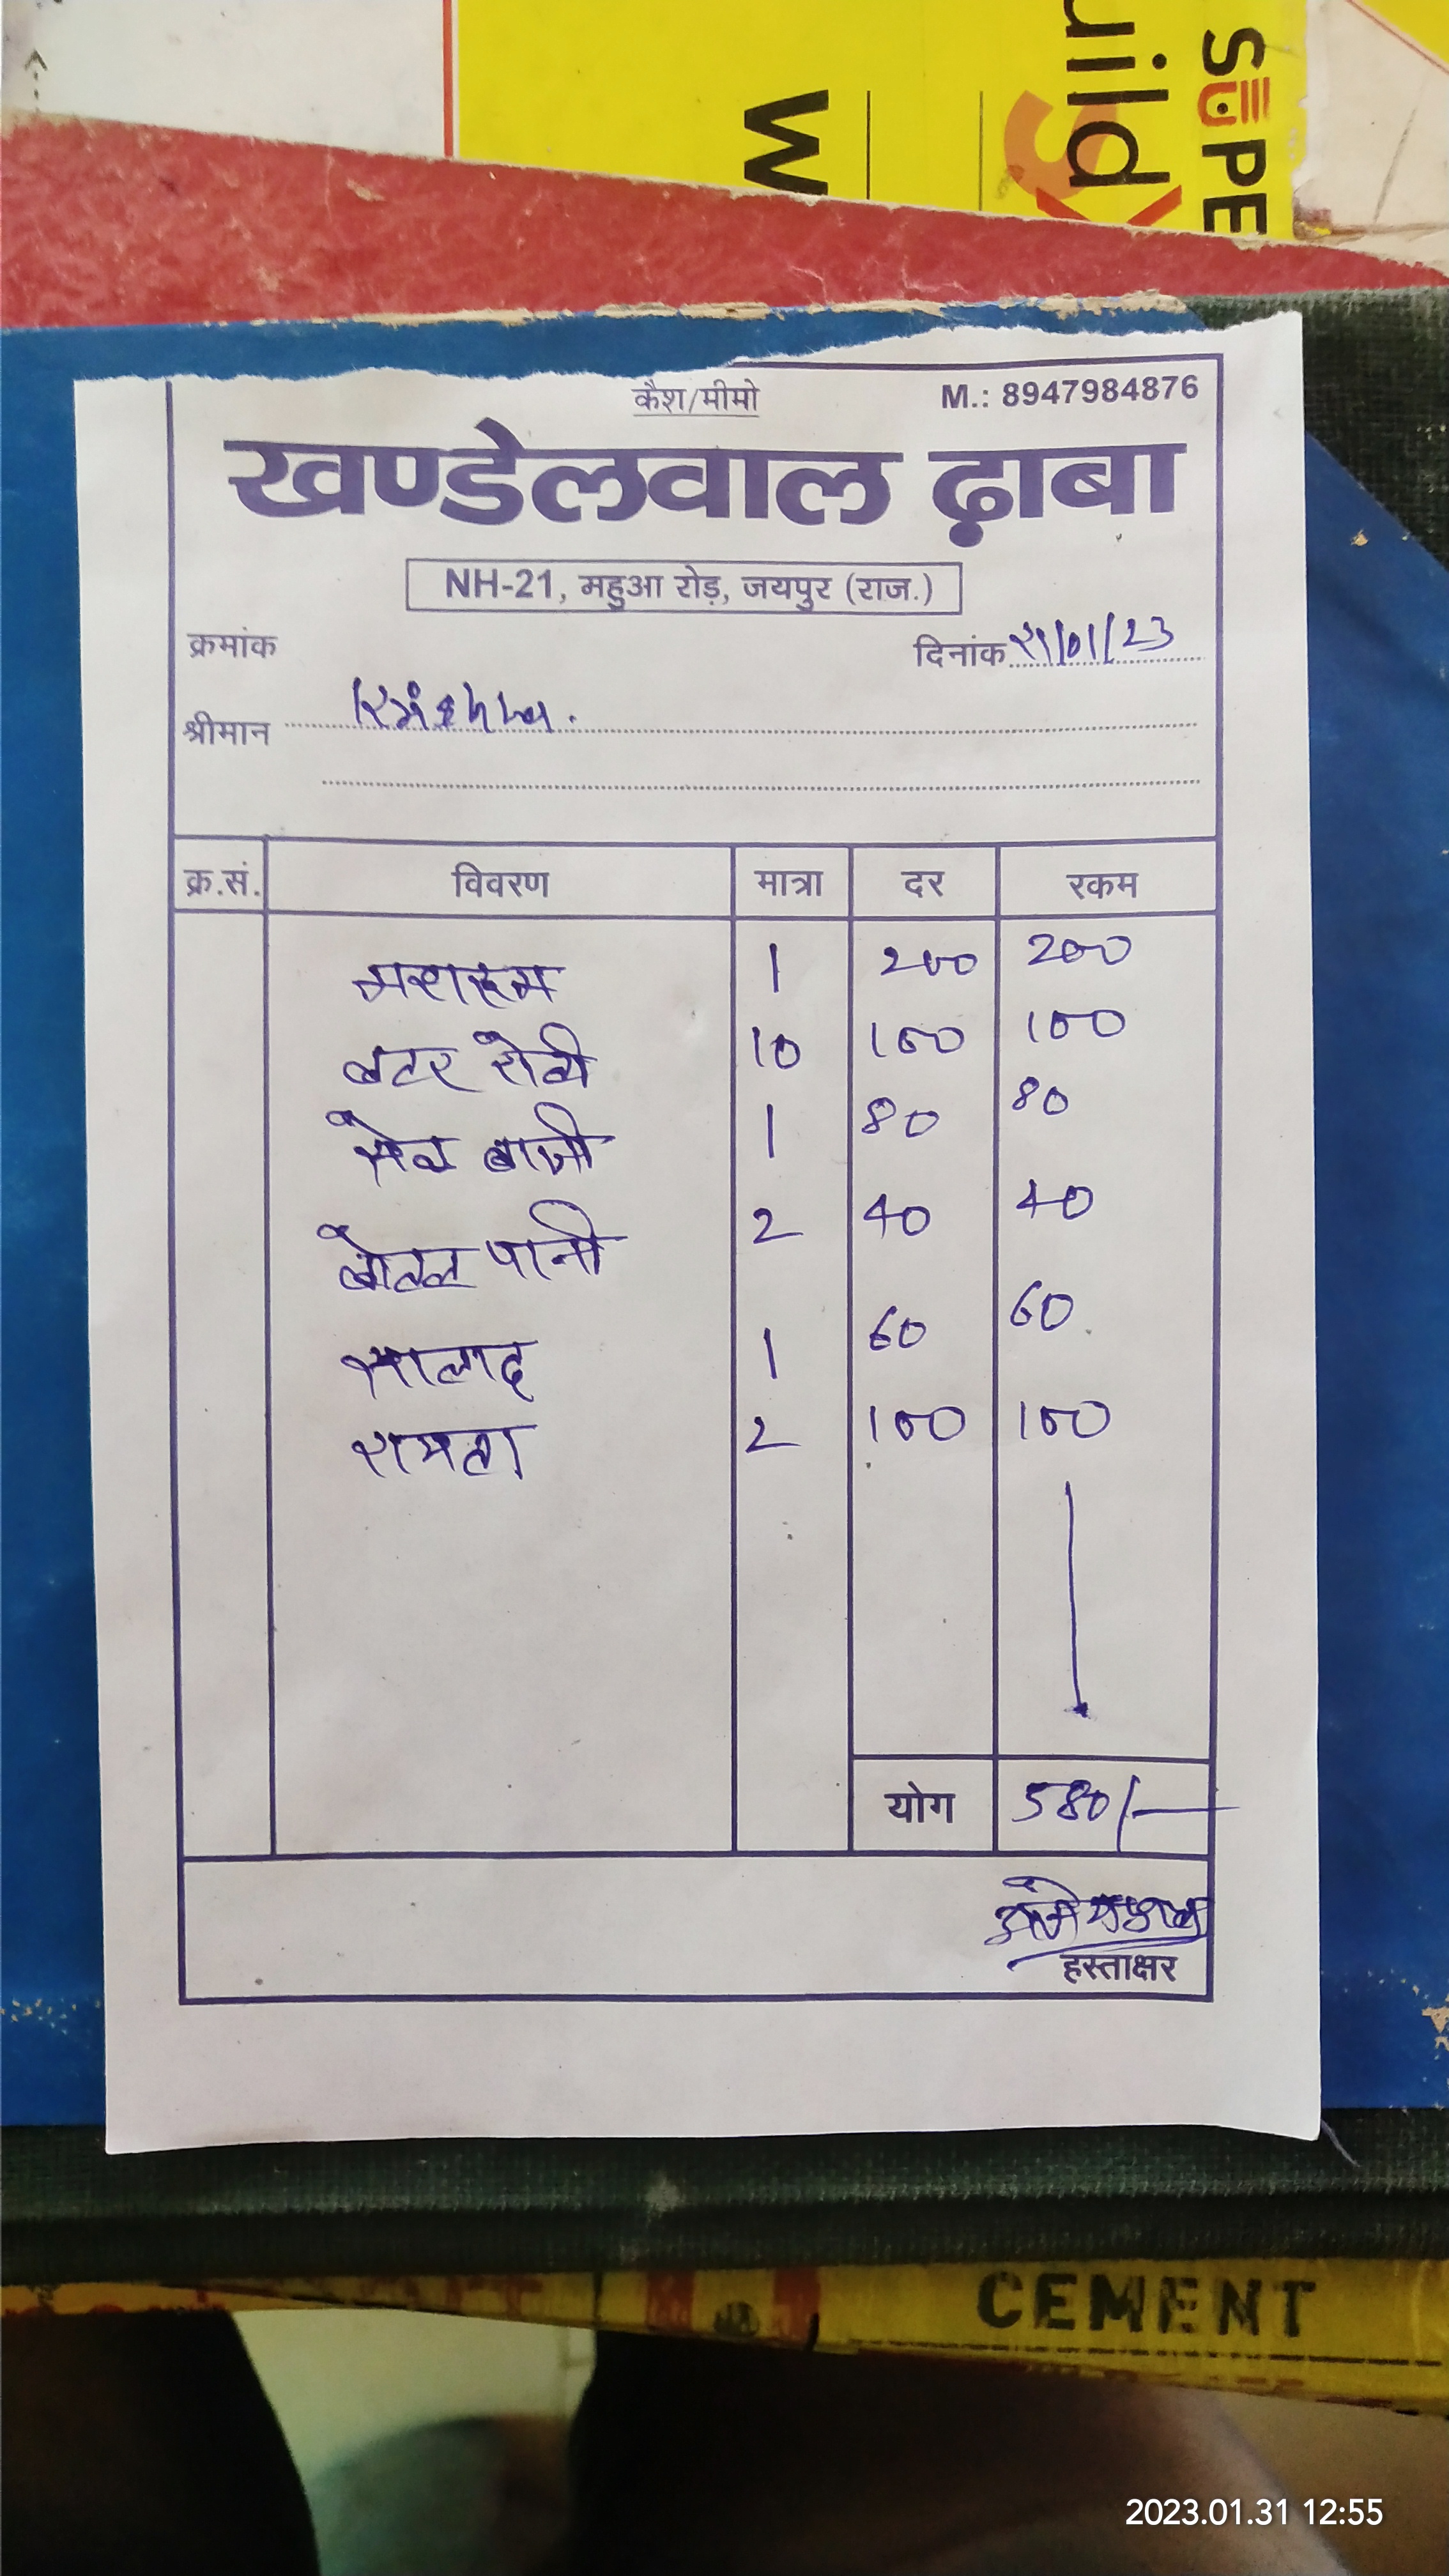 uild
SUPE
W
कैश/मीमो M.: 8947984876
खण्डेलवाल ढ़ाबा
NH-21, महुआ रोड़, जयपुर (राज.)
क्रमांक दिनांक 29/01/23
श्रीमान
क्र.सं. विवरण मात्रा दर रकम
मशरूम 1 200 200
बटर रोटी 10 100 100
सेव बाजी 1 80 80
बोतल पानी 2 40 40
सालाद 1 60 60
रायता 2 100 100
योग 580/-
हस्ताक्षर
CEMENT
2023.01.31 12:55